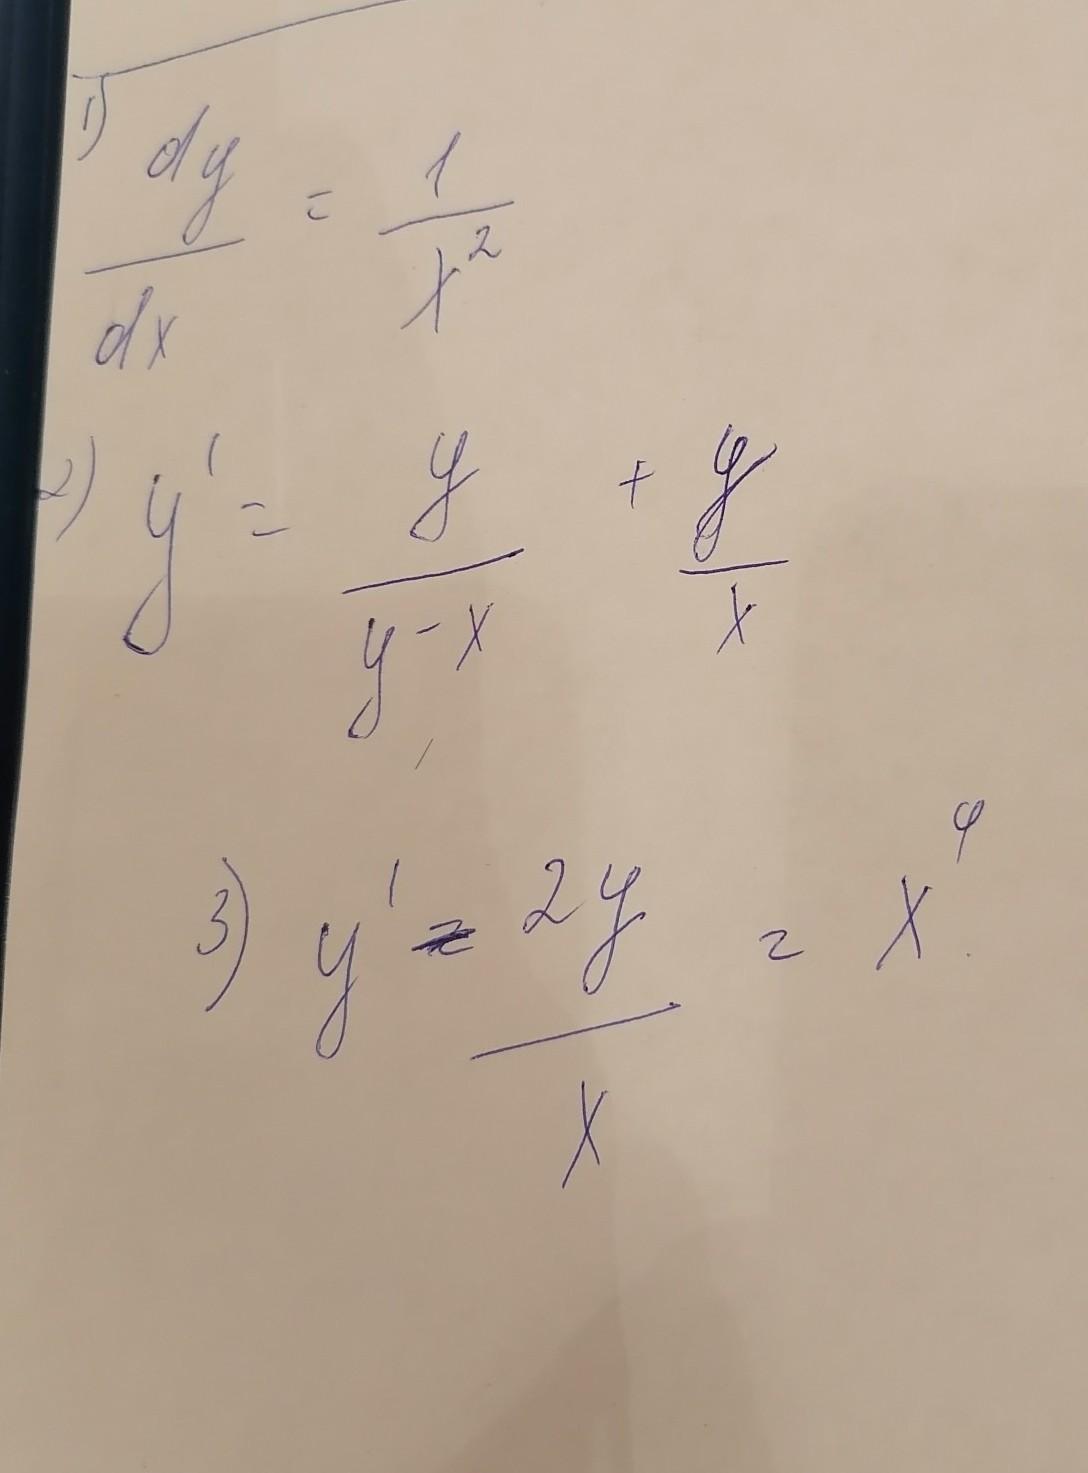 1) dy/dx = 1/x²
2) y' = y/(y-x) + y/x
3) y' - 2y/x = x⁴.